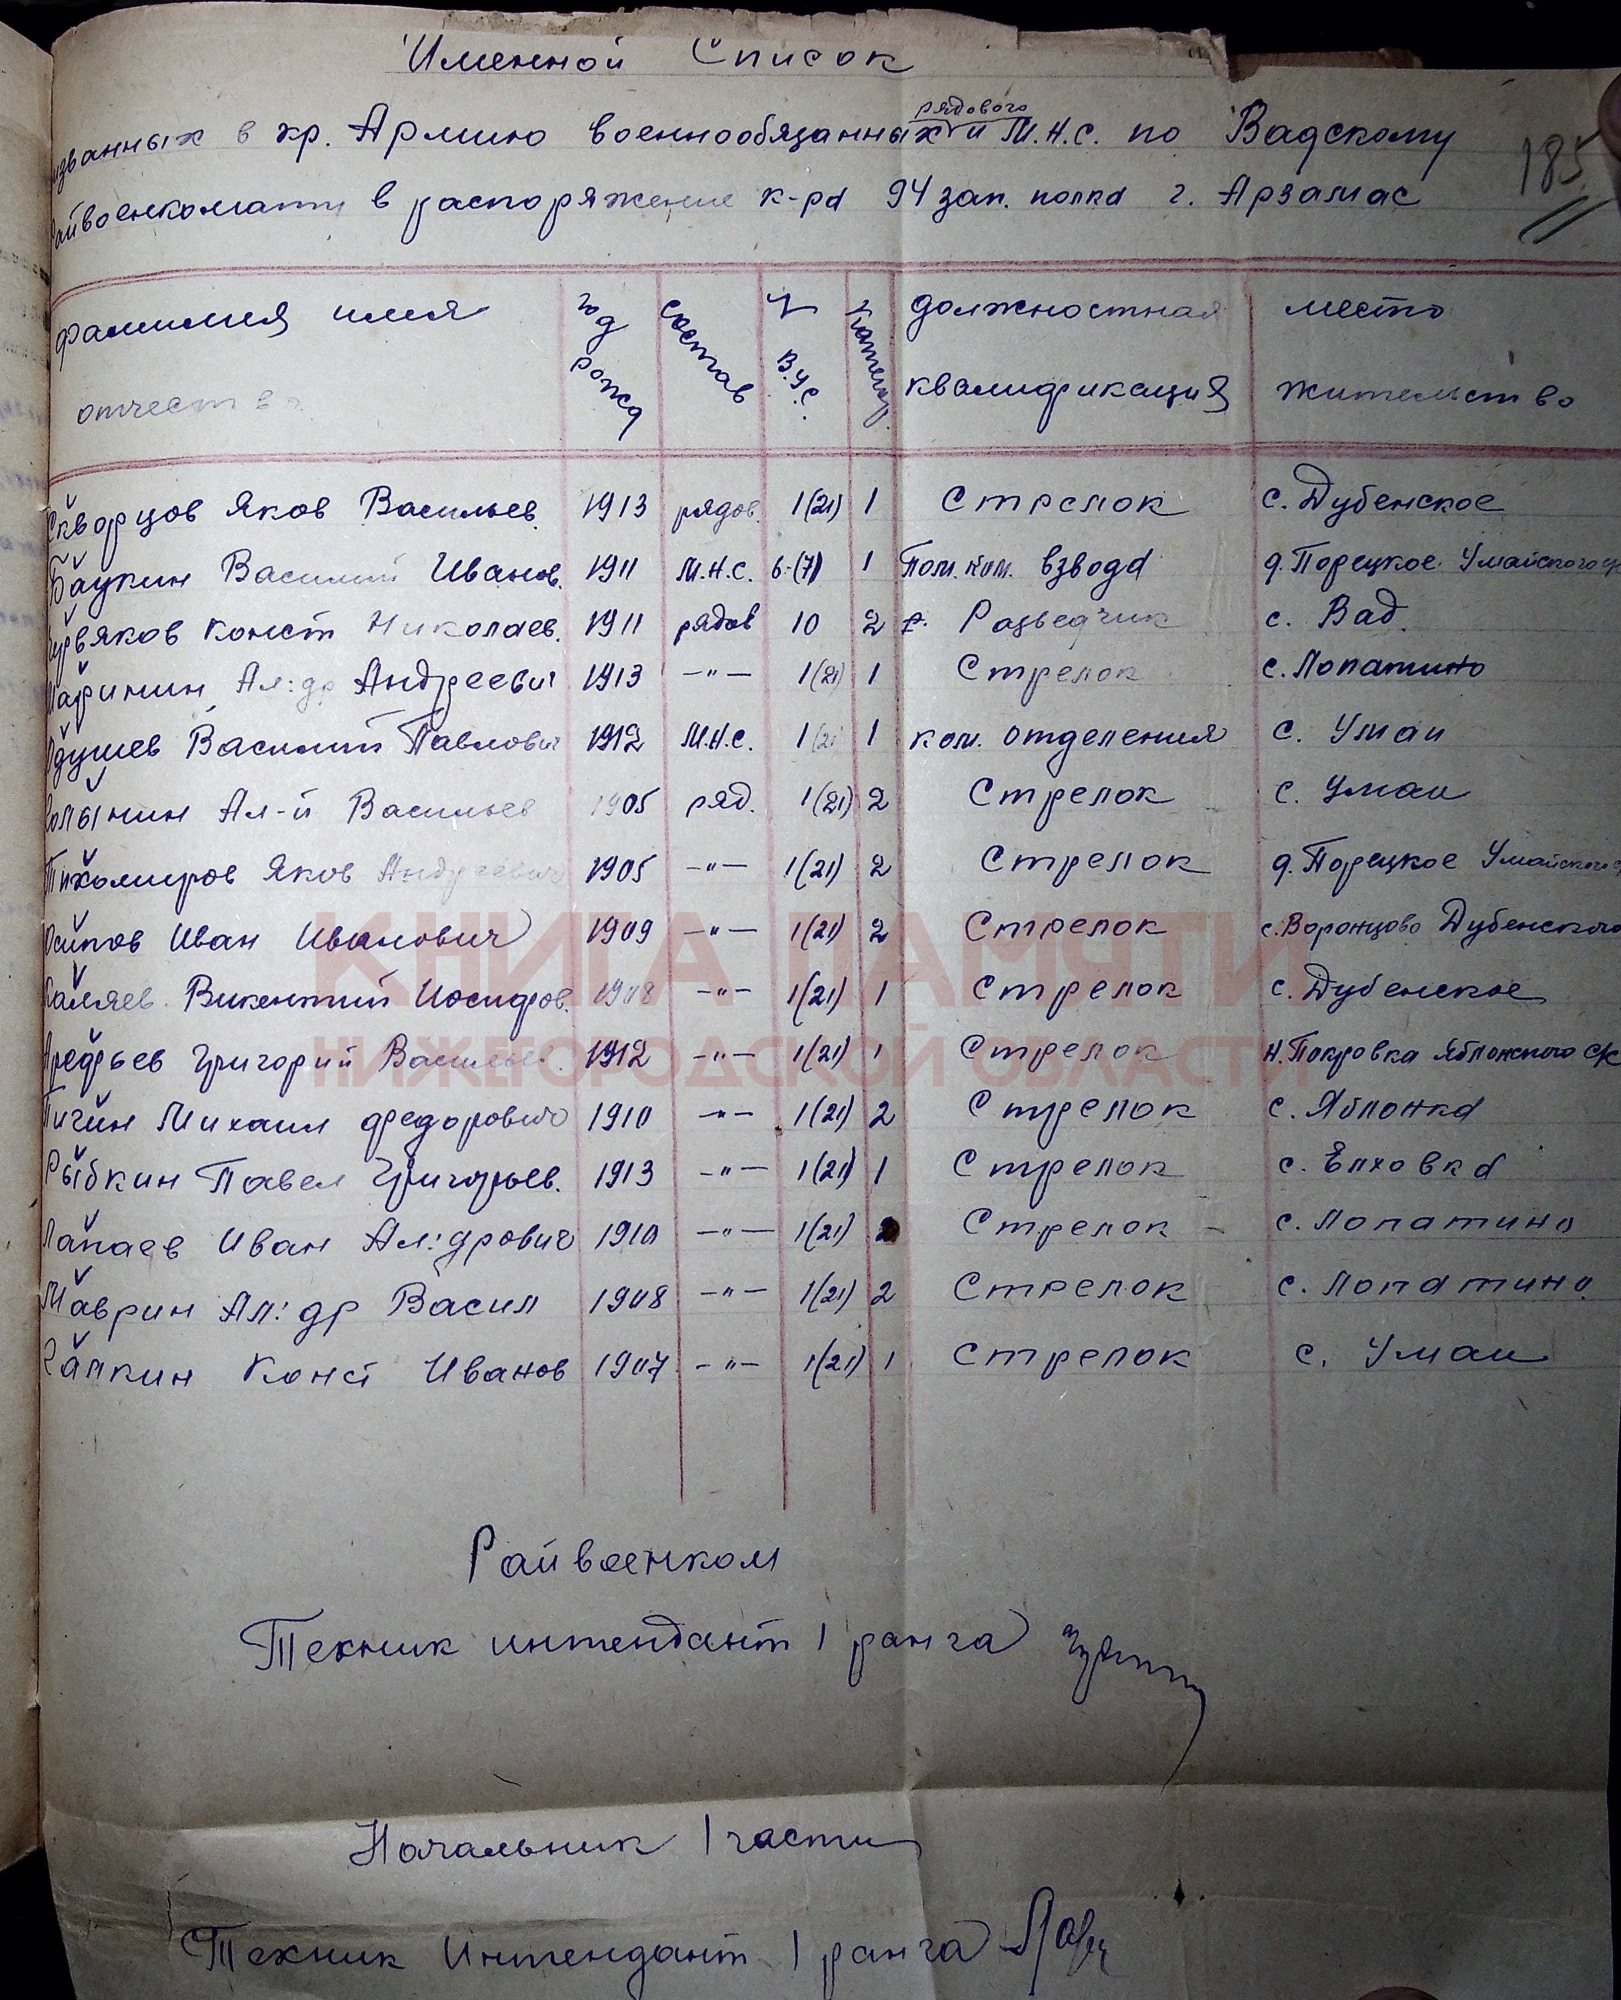 Именной Список
рядового
изванных в кр. Армию военнообязанных и М.Н.С. по Вадскому
185
райвоенкомату в распоряжение к-ра 94 зап. полка г. Арзамас
фамилия имя отчество год рожд состав № В.У.С. категор. должностная квалификация место жительство
Скворцов Яков Васильев. 1913 рядов. 1(21) 1 Стрелок с. Дубенское
Баукин Василий Иванов. 1911 М.Н.С. 6-(7) 1 Пом. ком. взвода д. Порецкое Умайского
Червяков Конст Николаев. 1911 рядов 10 2 Разведчик с. Вад.
Ал:др Андреевич 1913 -"- 1(21) 1 Стрелок с. Лопатино
Василий Павлович 1912 М.Н.С. 1(21) 1 ком. отделения с. Умаи
Ал-й Васильев 1905 ряд. 1(21) 2 Стрелок с. Умаи
Тихомиров Яков Андреевич 1905 -"- 1(21) 2 Стрелок д. Порецкое Умайского
Осипов Иван Иванович 1909 -"- 1(21) 2 Стрелок с. Воронцово Дубенского
Викентий Иосифов. 1908 -"- 1(21) 1 Стрелок с. Дубенское
Арефьев Григорий Васильев. 1912 -"- 1(21) 1 Стрелок Н. Покровка Яблонского с/с
Пичин Михаил Федорович 1910 -"- 1(21) 2 Стрелок с. Яблонка
Рыбкин Павел Григорьев. 1913 -"- 1(21) 1 Стрелок с. Елховка
Лапаев Иван Ал:дрович 1910 -"- 1(21) 2 Стрелок с. Лопатино
Маврин Ал:др Васил 1908 -"- 1(21) 2 Стрелок с. Лопатино
Конст Иванов 1907 -"- 1(21) 1 Стрелок с. Умаи
КНИГА ПАМЯТИ
НИЖЕГОРОДСКОЙ ОБЛАСТИ
Райвоенком
Техник интендант 1 ранга
Начальник 1 части
Техник Интендант 1 ранга